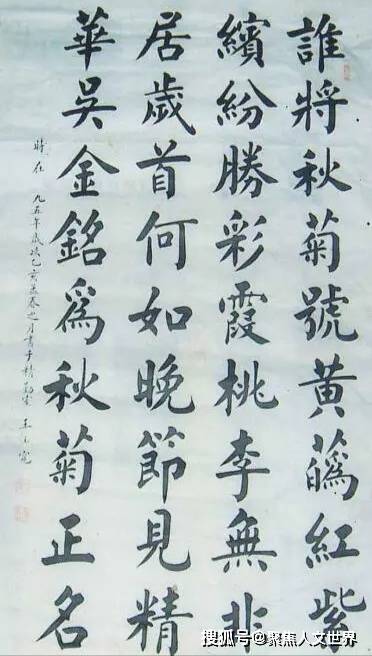 誰將秋菊號黃蘤紅紫
繽紛勝彩霞桃李無非
居歲首何如晚節見精
華吳金銘爲秋菊正名
時在 九五年歲次乙亥孟春之月書于精 王
搜狐号@聚焦人文世界